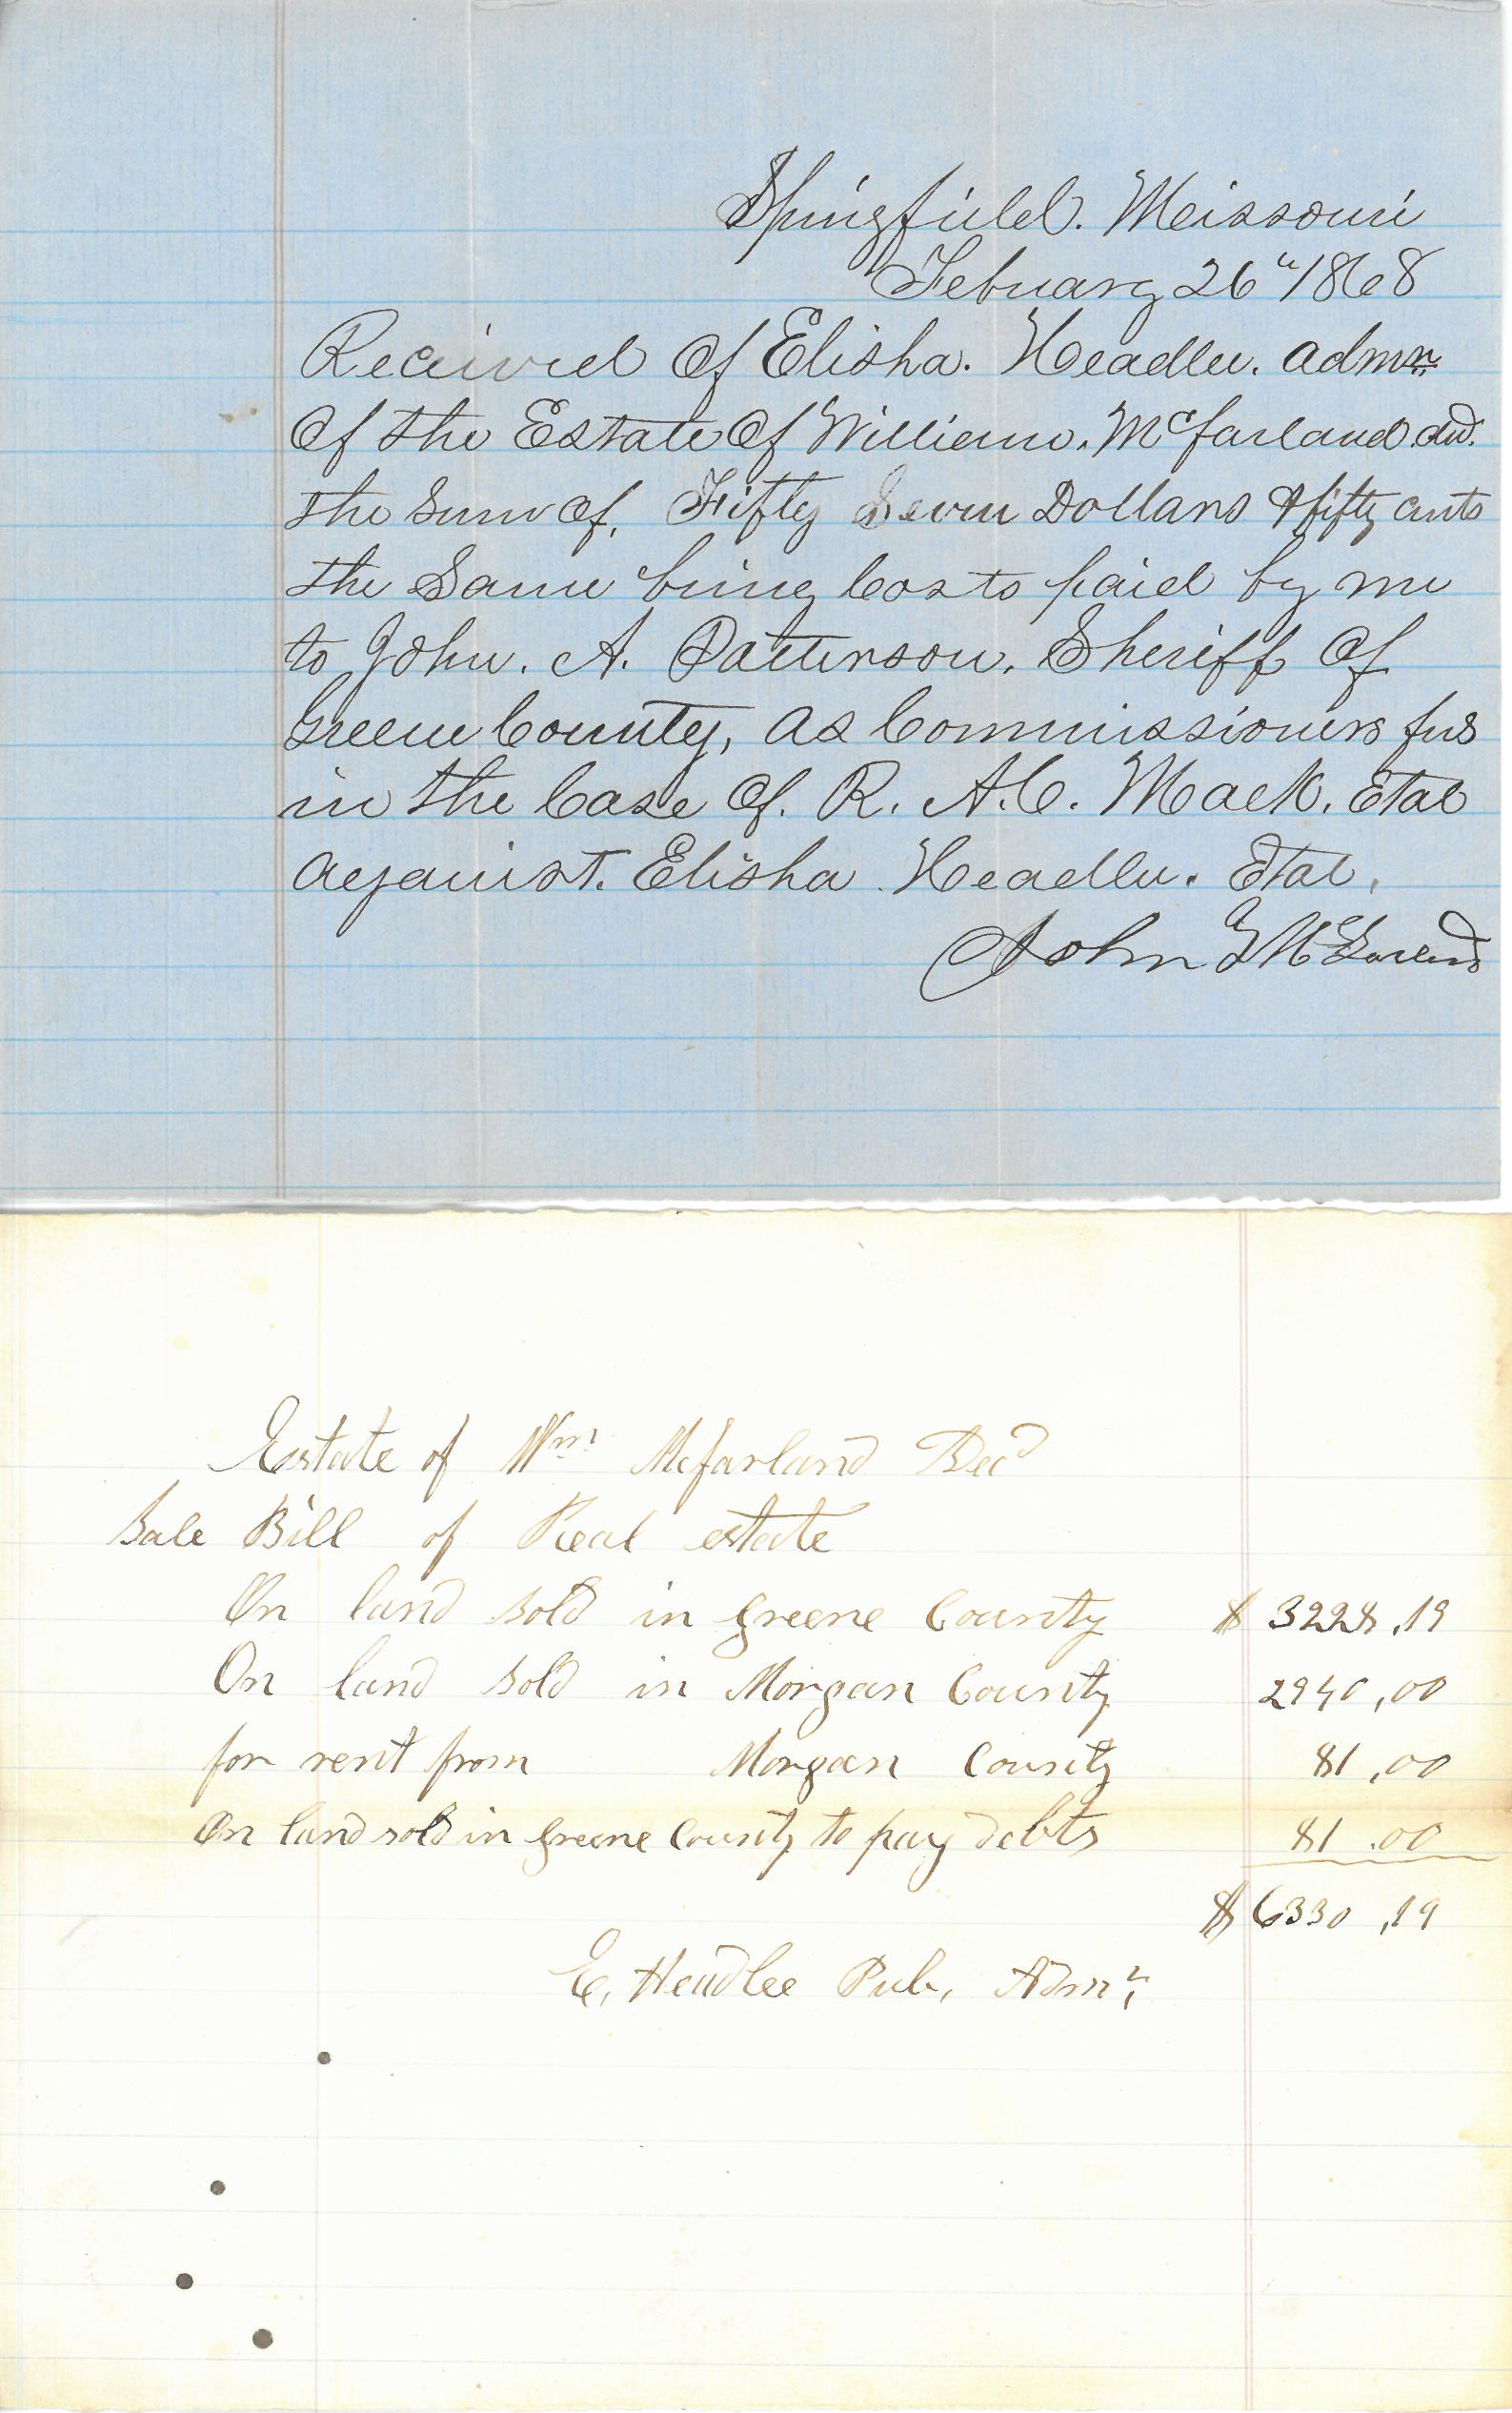 Springfield. Missouri
Febuary 26" 1868
Received Of Elisha. Headlee. admr.
Of the Estate Of William. McFarland. dec.
the Sum Of. Fifty Seven Dollars & fifty cents
the Same being Costs paid by me
to John. A. Patterson. Sheriff Of
Greene County, as Commissioners fees
in the Case Of. R. A. C. Mack. Etal
against. Elisha Headlee. Etal.
John McFarland
Estate of Wm Mcfarland Decd
Sale Bill of Real estate
On land sold in Greene County $ 3228,19
On land sold in Morgan County 2940,00
for rent from Morgan County 81,00
On land sold in Greene County to pay debts 81.00
$ 6330,19
E, Headlee Pub, Admr,